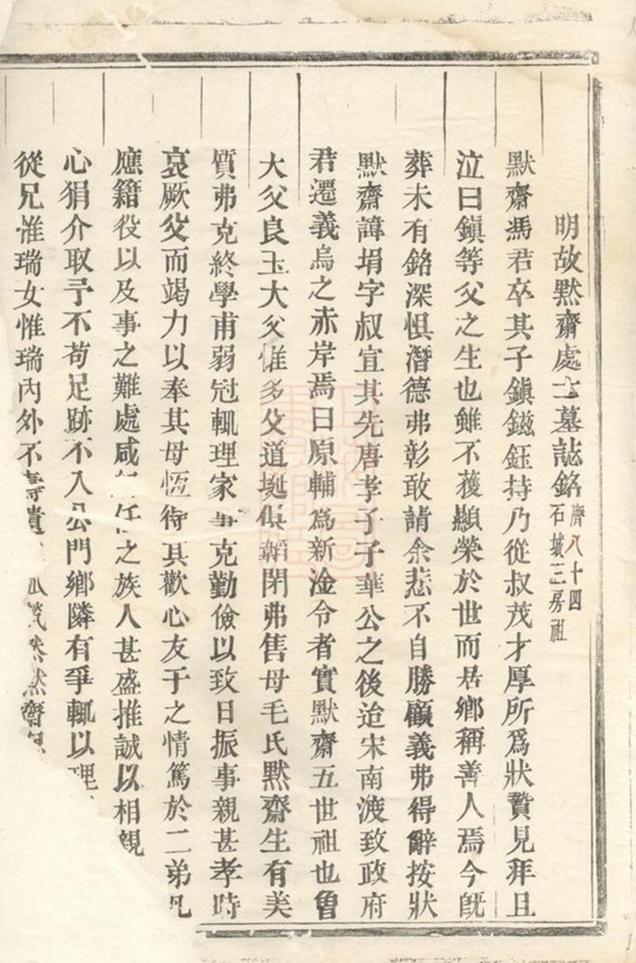 明故默齋處士墓誌銘 唐八十四石坡三房祖
默齋馮君卒其子鎭鎡鈺持乃從叔茂才厚所爲狀贄見拜且
泣曰鎭等父之生也雖不獲顯榮於世而居鄉稱善人焉今旣
葬未有銘深惧潛德弗彰敢請余悲不自勝顧義弗得辭按狀
默齋諱埍字叔宜其先唐孝子子華公之後迨宋南渡致政府
君遷義烏之赤岸焉曰原輔爲新淦令者實默齋五世祖也曾
大父良玉大父惟多父道㙷俱韜閉弗售母毛氏默齋生有美
質弗克終學甫弱冠輒理家事克勤儉以致日振事親甚孝時
哀厥父而竭力以奉其母恆待其歡心友于之情篤於二弟凡
應籍役以及事之難處咸任之族人甚盛推誠以相親
心狷介取予不苟足跡不入公門鄉隣有爭輒以理
從兄惟瑞女惟瑞內外不壽遺 然默齋